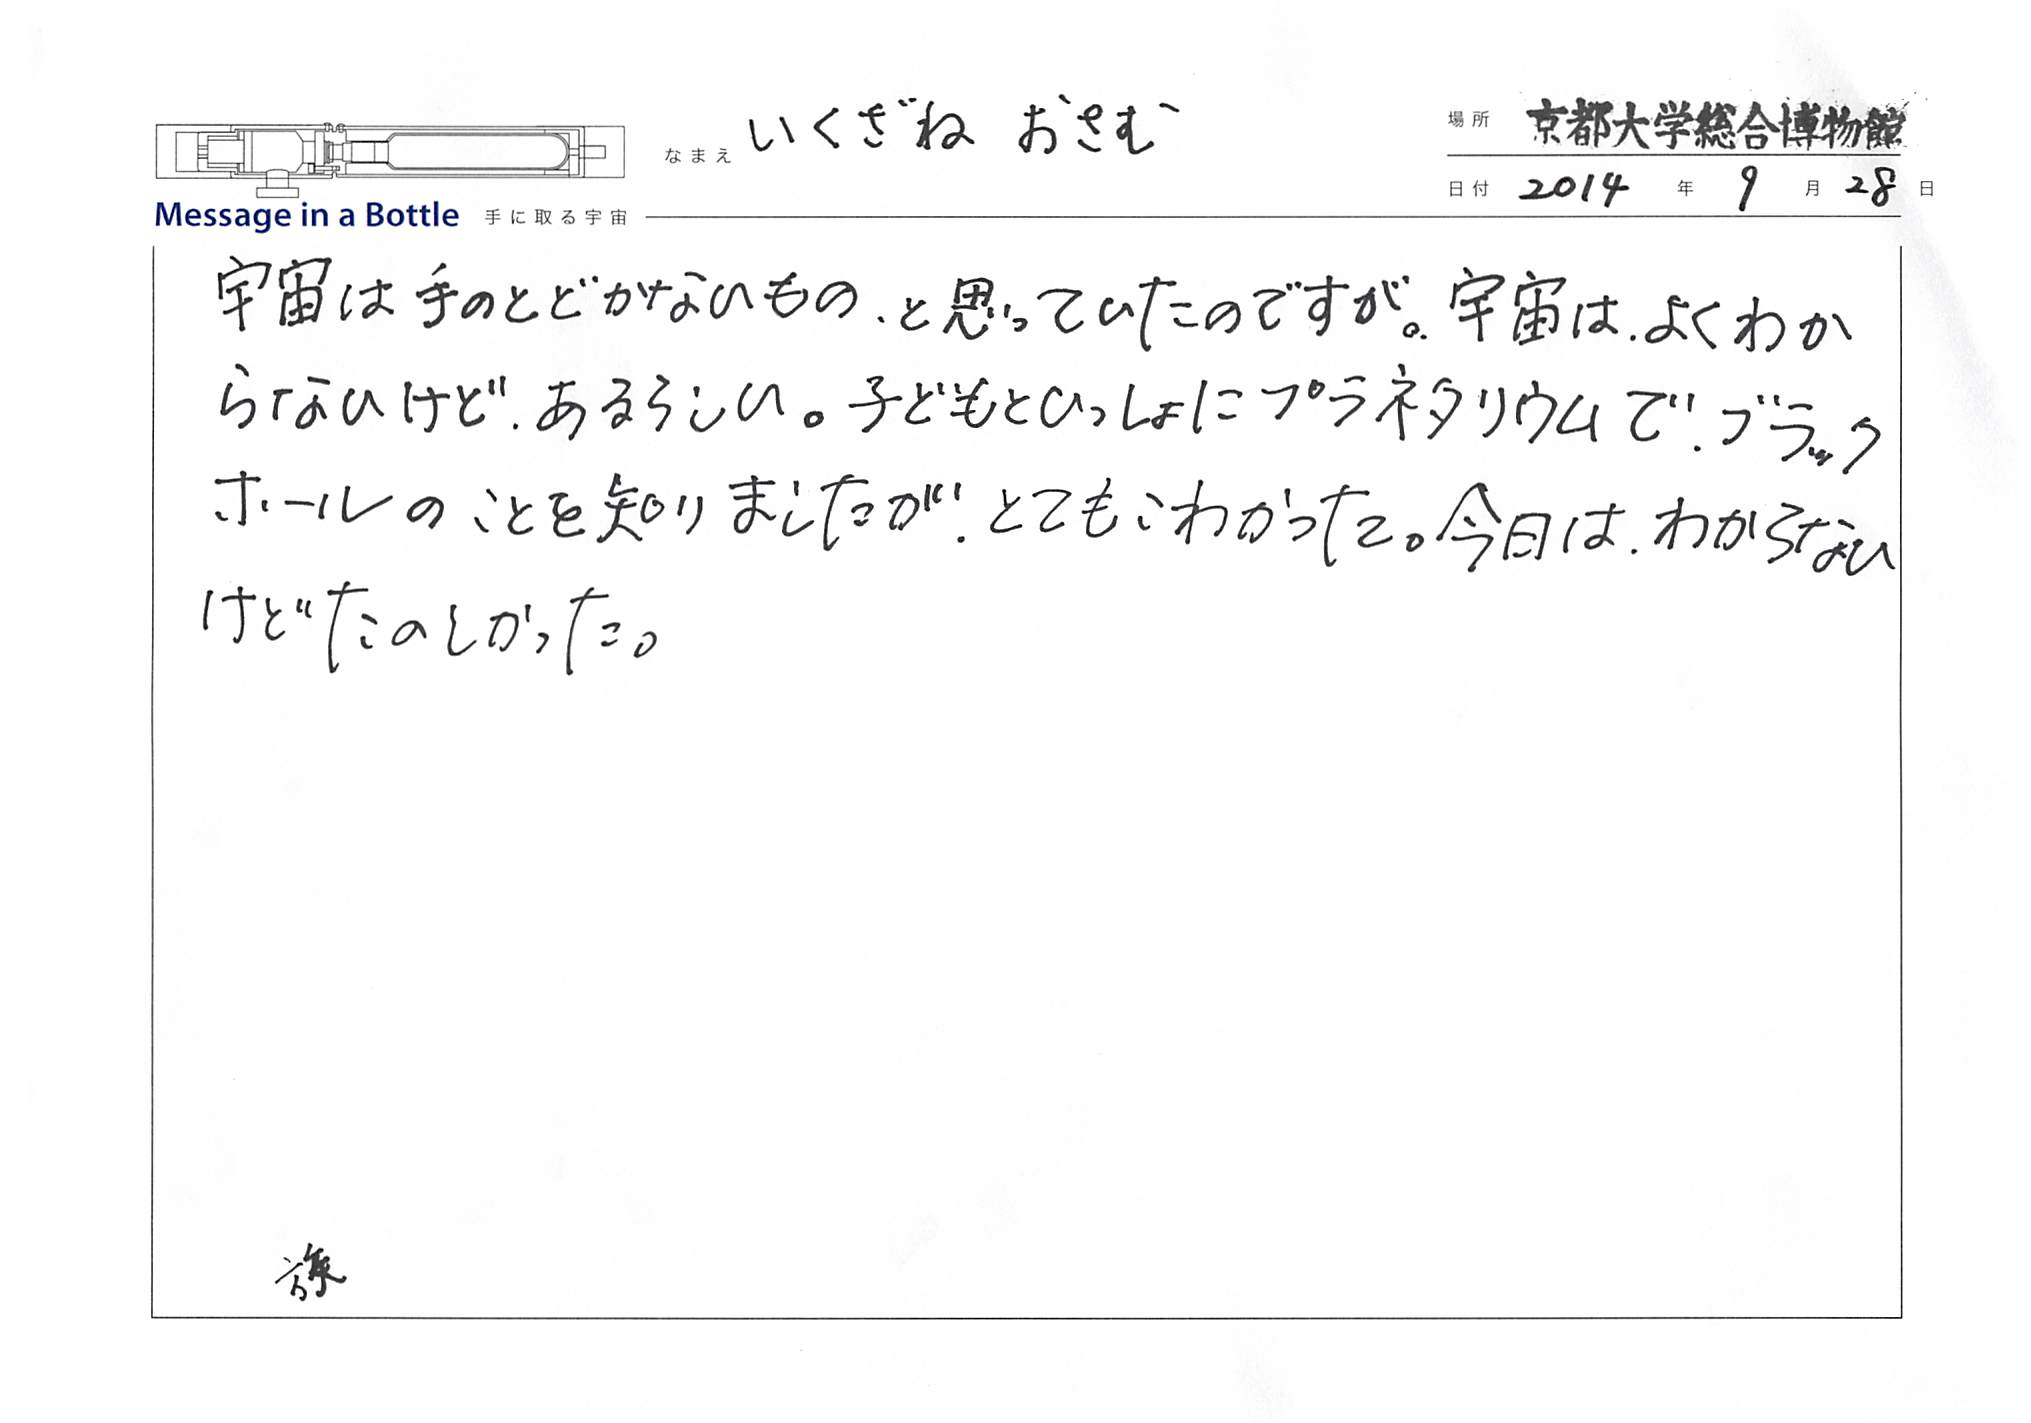 なまえ いくざね おさむ
場所 京都大学総合博物館
日付 2014 年 9 月 28 日
Message in a Bottle 手に取る宇宙
宇宙は手のとどかないもの、と思っていたのですが。宇宙は、よくわか
らないけど、あるらしい。子どもといっしょにプラネタリウムで、ブラック
ホールのことを知りましたが、とてもこわかった。今日は、わからない
けどたのしかった。